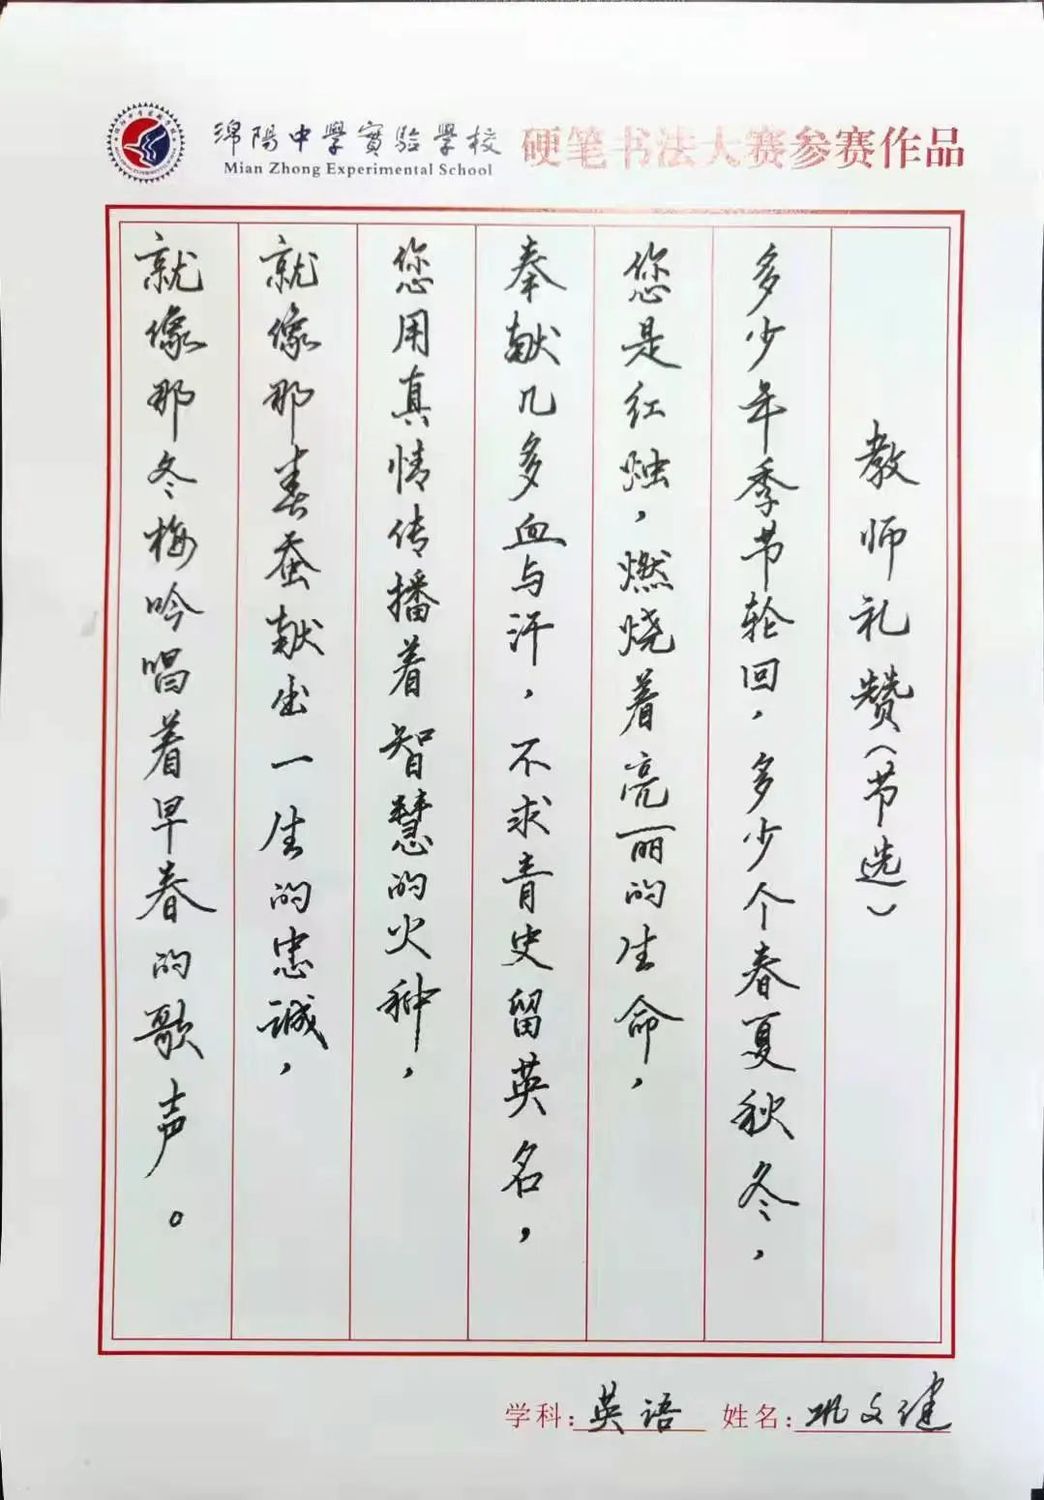 綿陽中學實驗學校
Mian Zhong Experimental School
硬笔书法大赛参赛作品
教师礼赞（节选）
多少年季节轮回，多少个春夏秋冬，
您是红烛，燃烧着亮丽的生命，
奉献几多血与汗，不求青史留英名，
您用真情传播着智慧的火种，
就像那春蚕献出一生的忠诚，
就像那冬梅吟唱着早春的歌声。
学科：英语 姓名：巩文健